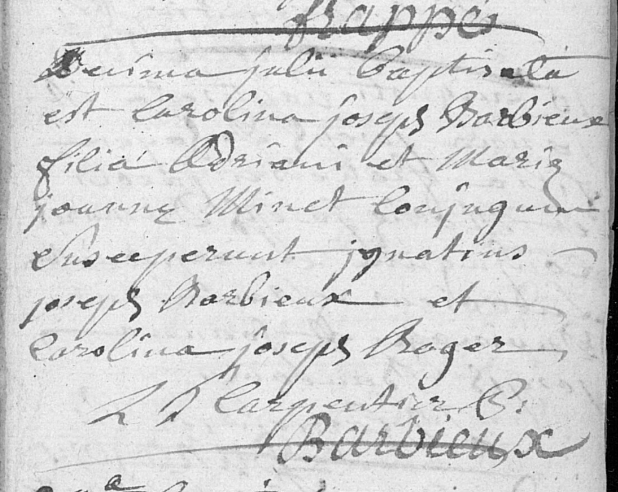 frappé
Decima julii baptisata
est Carolina joseph Barbieux
filia Adriani et Mariæ
joannæ Minet Conjugum
Susceperunt jgnatius
joseph Barbieux et
Carolina joseph Roger
Carpentier
Barbieux